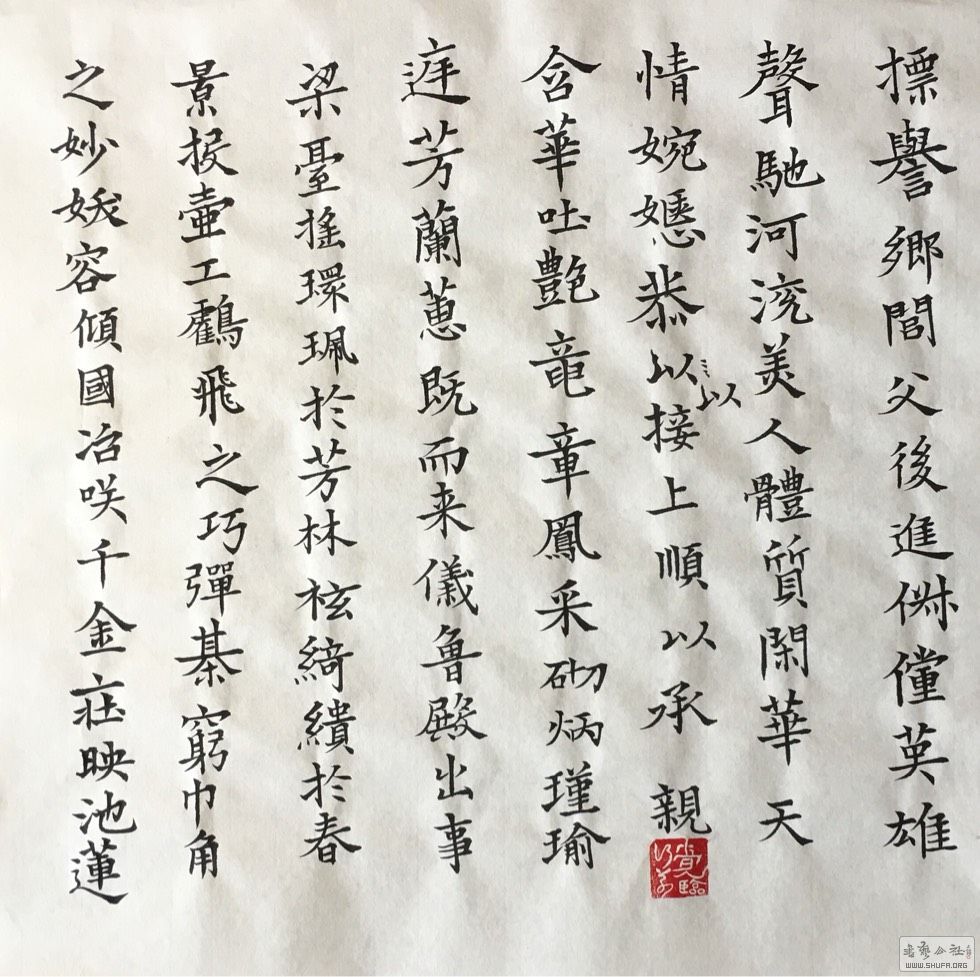 摽譽鄉閭父後進俶儻英雄
聲馳河渷美人體質閑華天
情婉嫕恭以接上順以承親
以
含華吐艷竜章鳳采砌炳瑾瑜
庭芳蘭蕙既而来儀魯殿出事
梁臺搖環珮於芳林袨綺繢於春
景投壺工鸖飛之巧彈棊窮巾角
之妙妖容傾國冶咲千金莊映池蓮
書藝公社
WWW.SHUFA.ORG